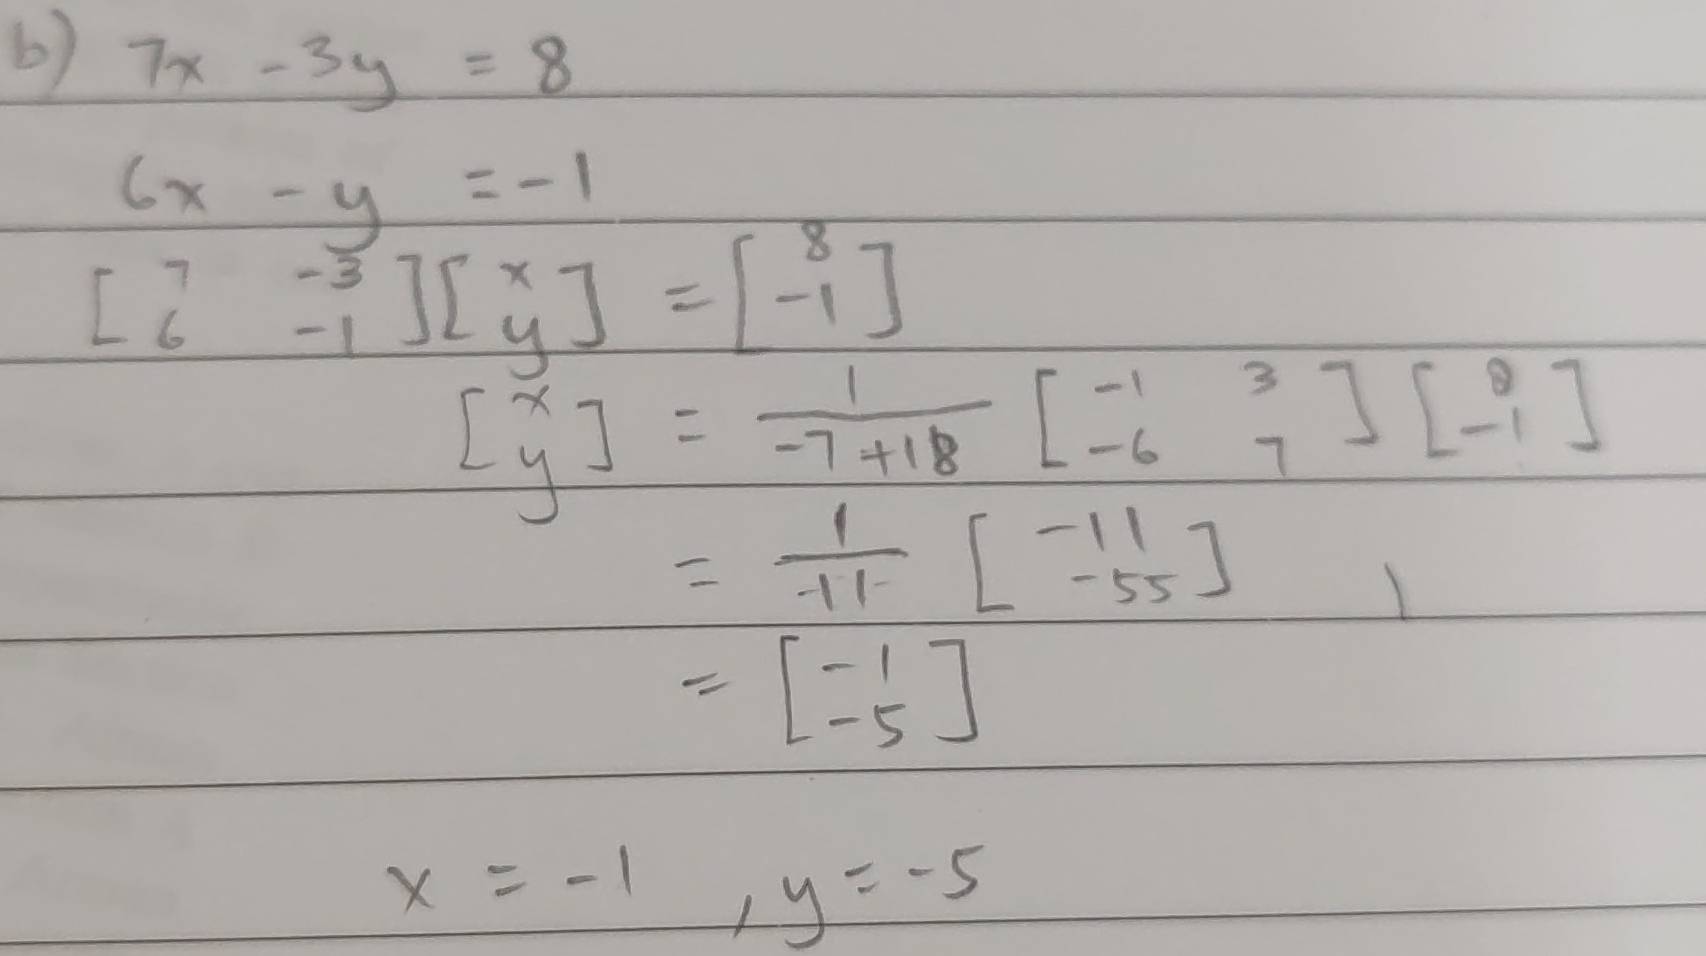 b) 7x - 3y = 8
6x - y = -1
[7 -3; 6 -1][x; y] = [8; -1]
[x; y] = 1/(-7+18) [-1 3; -6 7][8; -1]
= 1/11 [-11; -55]
= [-1; -5]
x = -1, y = -5